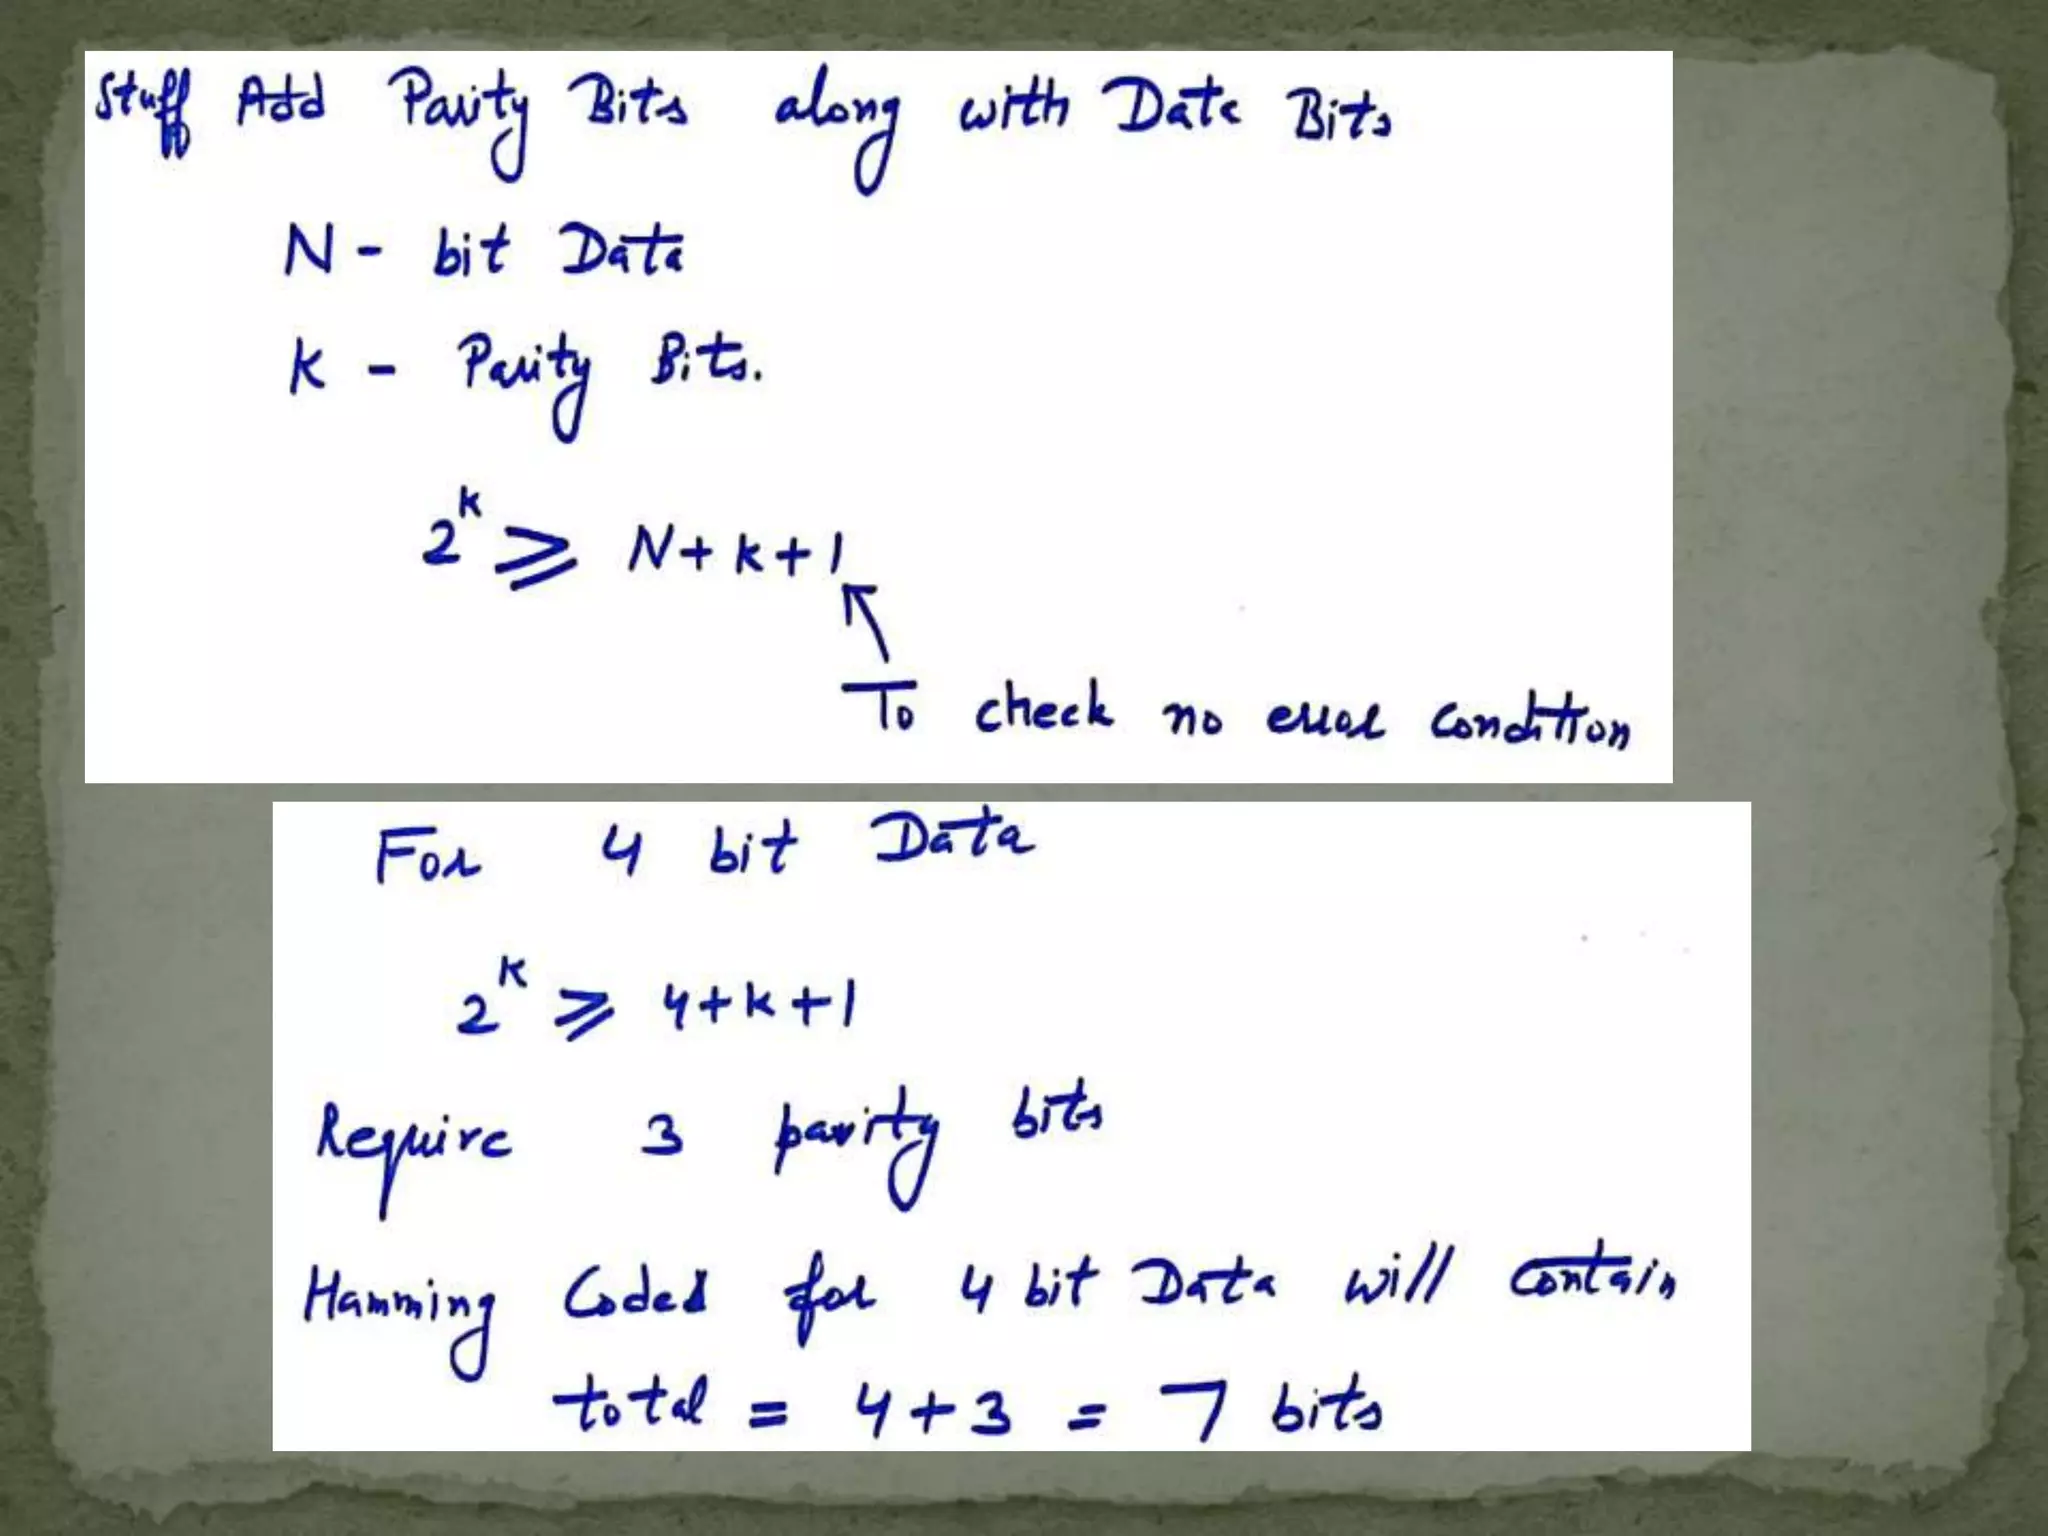 Stuff Add Parity Bits along with Data Bits
N - bit Data
K - Parity Bits.
2^K ≥ N+K+1
To check no error condition
For 4 bit Data
2^K ≥ 4+K+1
Require 3 parity bits
Hamming Coded for 4 bit Data will contain
total = 4+3 = 7 bits